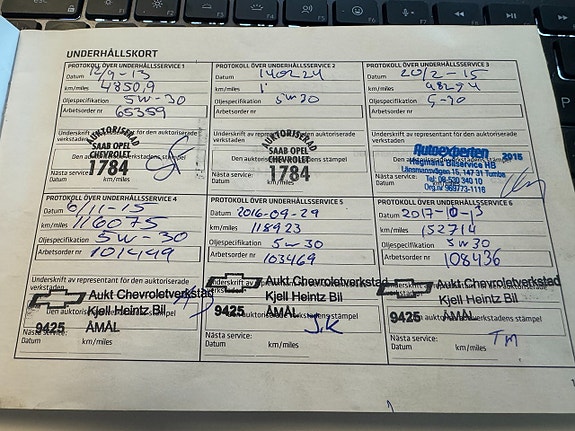 UNDERHÅLLSKORT
PROTOKOLL ÖVER UNDERHÅLLSSERVICE 1
Datum 12/9-13
km/miles 4850,9
Oljespecifikation 5W-30
Arbetsorder nr 65359
Underskrift av representant för den auktoriserade
verkstaden
AUKTORISERAD
SAAB OPEL
CHEVROLET
1784
Nästa service:
Datum km/miles
PROTOKOLL ÖVER UNDERHÅLLSSERVICE 2
Datum 140224
km/miles
Oljespecifikation 5W30
Arbetsorder nr
Underskrift av representant för den auktoriserade
verkstaden
AUKTORISERAD
SAAB OPEL
CHEVROLET
1784
Nästa service:
Datum km/miles
PROTOKOLL ÖVER UNDERHÅLLSSERVICE 3
Datum 20/2-15
km/miles
Oljespecifikation 5-30
Arbetsorder nr
Underskrift av representant för den auktoriserade
verkstaden
Autoexperten 2015
Hagmans Bilservice HB
Länsmansvägen 15, 147 31 Tumba
Tel: 08-530 340 10
Org.nr 969773-1116
Nästa
Datum km/miles
PROTOKOLL ÖVER UNDERHÅLLSSERVICE 4
Datum 6/11-15
km/miles 116075
Oljespecifikation 5W-30
Arbetsorder nr 101449
Underskrift av representant för den auktoriserade
verkstaden
Aukt Chevroletverkstad
Kjell Heintz Bil
9425 ÅMÅL
Nästa service:
Datum km/miles
PROTOKOLL ÖVER UNDERHÅLLSSERVICE 5
Datum 2016-09-29
km/miles 118923
Oljespecifikation 5W30
Arbetsorder nr 103469
Underskrift av
Aukt Chevroletverkstad
Kjell Heintz Bil
9425 ÅMÅL
J.K
Nästa service:
Datum km/miles
PROTOKOLL ÖVER UNDERHÅLLSSERVICE 6
Datum 2017-10-13
km/miles 152714
Oljespecifikation 5W30
Arbetsorder nr 108436
Underskrift av
Aukt Chevroletverkstad
Kjell Heintz Bil
9425 ÅMÅL
Nästa service: TM
Datum km/miles